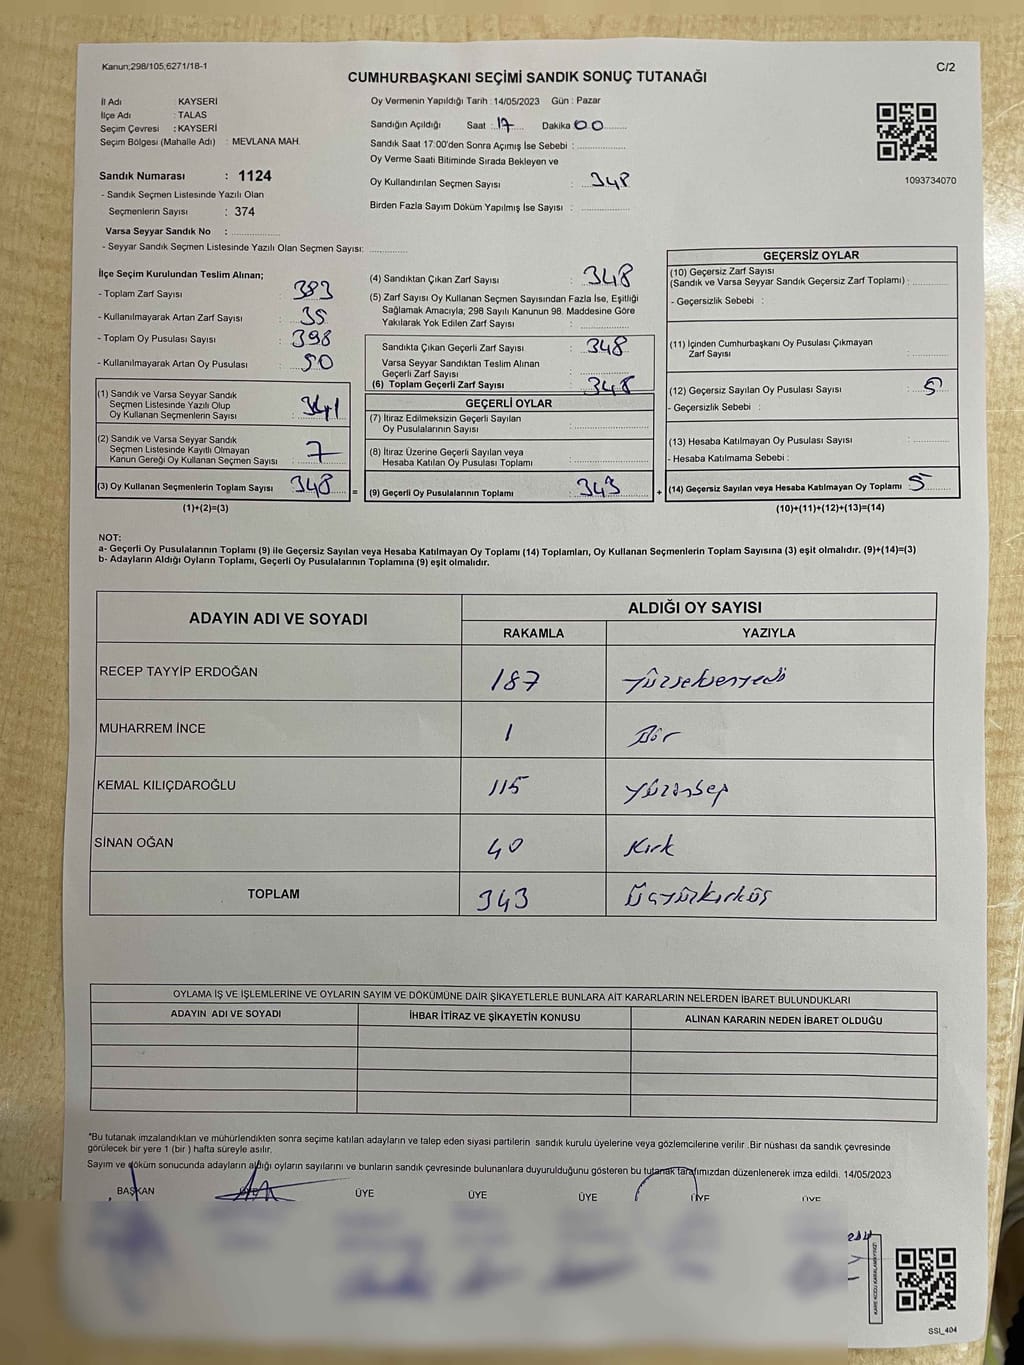 Kanun;298/105,6271/18-1
C/2
CUMHURBAŞKANI SEÇİMİ SANDIK SONUÇ TUTANAĞI
İl Adı : KAYSERİ
İlçe Adı : TALAS
Seçim Çevresi : KAYSERİ
Seçim Bölgesi (Mahalle Adı) : MEVLANA MAH.
Sandık Numarası : 1124
- Sandık Seçmen Listesinde Yazılı Olan
Seçmenlerin Sayısı : 374
Varsa Seyyar Sandık No :
- Seyyar Sandık Seçmen Listesinde Yazılı Olan Seçmen Sayısı:
Oy Vermenin Yapıldığı Tarih : 14/05/2023 Gün : Pazar
Sandığın Açıldığı Saat : 17 Dakika 00
Sandık Saat 17:00'den Sonra Açımış İse Sebebi :
Oy Verme Saati Bitiminde Sırada Bekleyen ve
Oy Kullandırılan Seçmen Sayısı : 348
Birden Fazla Sayım Döküm Yapılmış İse Sayısı :
1093734070
İlçe Seçim Kurulundan Teslim Alınan;
- Toplam Zarf Sayısı : 383
- Kullanılmayarak Artan Zarf Sayısı : 35
- Toplam Oy Pusulası Sayısı : 398
- Kullanılmayarak Artan Oy Pusulası : 50
(1) Sandık ve Varsa Seyyar Sandık
Seçmen Listesinde Yazılı Olup
Oy Kullanan Seçmenlerin Sayısı : 341
(2) Sandık ve Varsa Seyyar Sandık
Seçmen Listesinde Kayıtlı Olmayan
Kanun Gereği Oy Kullanan Seçmen Sayısı : 7
(3) Oy Kullanan Seçmenlerin Toplam Sayısı 348
(1)+(2)=(3)
(4) Sandıktan Çıkan Zarf Sayısı : 348
(5) Zarf Sayısı Oy Kullanan Seçmen Sayısından Fazla İse, Eşitliği
Sağlamak Amacıyla; 298 Sayılı Kanunun 98. Maddesine Göre
Yakılarak Yok Edilen Zarf Sayısı :
Sandıkta Çıkan Geçerli Zarf Sayısı : 348
Varsa Seyyar Sandıktan Teslim Alınan
Geçerli Zarf Sayısı :
(6) Toplam Geçerli Zarf Sayısı : 348
GEÇERLİ OYLAR
(7) İtiraz Edilmeksizin Geçerli Sayılan
Oy Pusulalarının Sayısı :
(8) İtiraz Üzerine Geçerli Sayılan veya
Hesaba Katılan Oy Pusulası Toplamı :
= (9) Geçerli Oy Pusulalarının Toplamı : 343
GEÇERSİZ OYLAR
(10) Geçersiz Zarf Sayısı
(Sandık ve Varsa Seyyar Sandık Geçersiz Zarf Toplamı) :
- Geçersizlik Sebebi :
(11) İçinden Cumhurbaşkanı Oy Pusulası Çıkmayan
Zarf Sayısı :
(12) Geçersiz Sayılan Oy Pusulası Sayısı : 5
- Geçersizlik Sebebi :
(13) Hesaba Katılmayan Oy Pusulası Sayısı :
- Hesaba Katılmama Sebebi :
+ (14) Geçersiz Sayılan veya Hesaba Katılmayan Oy Toplamı 5
(10)+(11)+(12)+(13)=(14)
NOT:
a- Geçerli Oy Pusulalarının Toplamı (9) ile Geçersiz Sayılan veya Hesaba Katılmayan Oy Toplamı (14) Toplamları, Oy Kullanan Seçmenlerin Toplam Sayısına (3) eşit olmalıdır. (9)+(14)=(3)
b- Adayların Aldığı Oyların Toplamı, Geçerli Oy Pusulalarının Toplamına (9) eşit olmalıdır.
ADAYIN ADI VE SOYADI
ALDIĞI OY SAYISI
RAKAMLA YAZIYLA
RECEP TAYYİP ERDOĞAN 187 Yüzseksenyedi
MUHARREM İNCE 1 Bir
KEMAL KILIÇDAROĞLU 115 yüzonbeş
SİNAN OĞAN 40 Kırk
TOPLAM 343 Üçyüzkırküç
OYLAMA İŞ VE İŞLEMLERİNE VE OYLARIN SAYIM VE DÖKÜMÜNE DAİR ŞİKAYETLERLE BUNLARA AİT KARARLARIN NELERDEN İBARET BULUNDUKLARI
ADAYIN ADI VE SOYADI İHBAR İTİRAZ VE ŞİKAYETİN KONUSU ALINAN KARARIN NEDEN İBARET OLDUĞU
*Bu tutanak imzalandıktan ve mühürlendikten sonra seçime katılan adayların ve talep eden siyasi partilerin sandık kurulu üyelerine veya gözlemcilerine verilir .Bir nüshası da sandık çevresinde
görülecek bir yere 1 (bir ) hafta süreyle asılır.
Sayım ve döküm sonucunda adayların aldığı oyların sayılarını ve bunların sandık çevresinde bulunanlara duyurulduğunu gösteren bu tutanak tarafımızdan düzenlenerek imza edildi. 14/05/2023
BAŞKAN ÜYE ÜYE ÜYE ÜYE ÜYE ÜYE
KARE KODU KARALAMAYINIZ!
SSI_404